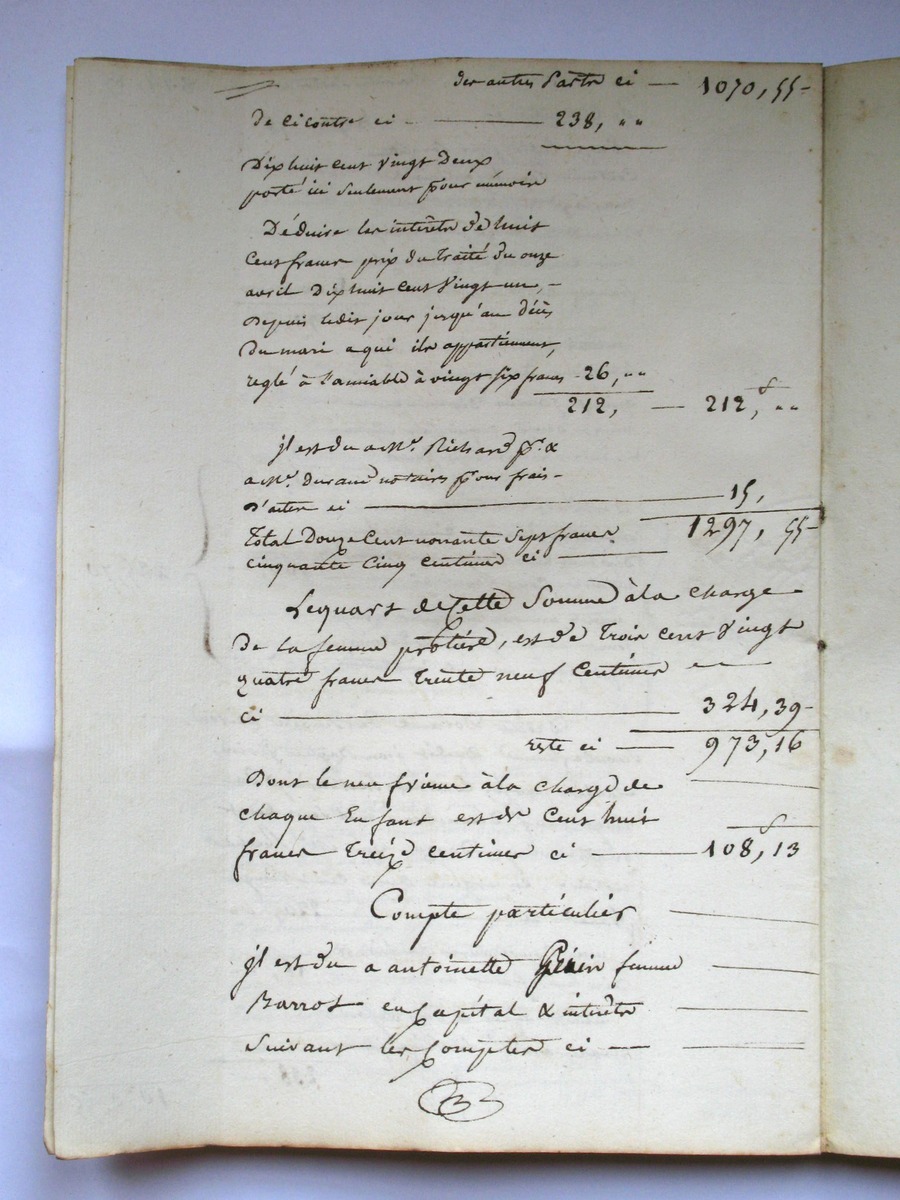 des autres Parts ci — 1070, 55-
De ci contre ci — 238, " "
Dix huit cent vingt Deux
porté ici seulement pour mémoire
Déduire les intérêts de huit
Cent francs prix du Traité du onze
avril Dix huit Cent Vingt un, -
Depuis ledit jour jusqu'au décès
Du mari a qui ils appartiennent,
reglé à l'amiable à vingt six francs - 26, " "
212, — 212, " "
jl est du a Mr. Richard pr. &
a Mr. Durand notaires pour frais -
D'actes ci — 15,
Total Douze Cent nonante Sept francs 1297, 55-
cinquante Cinq Centimes ci —
Le quart de Cette Somme à la charge
De la femme , est de Trois cent Vingt
quatre francs Trente neuf Centimes —
ci — 324, 39-
reste ci — 973, 16
Dont le neuvième à la charge de
chaque Enfant est de Cent huit
francs Treize centimes ci — 108, 13
Compte particulier
jl est du a antoinette femme
Barrot en Capital & intérêts
Suivant les Comptes ci —